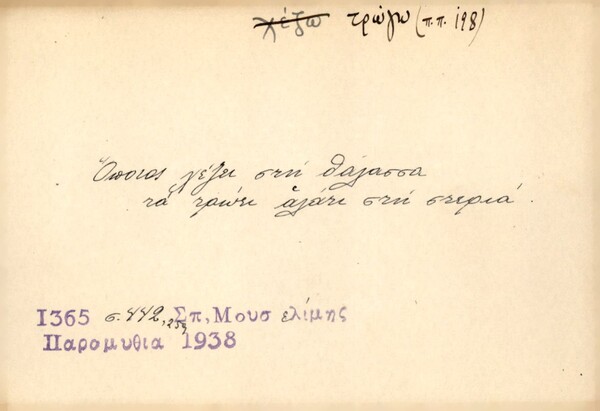 χέζω τρώγω (π.π. 198)
Ὅποιος χέζει στή θάλασσα
τό τρώει ἁλάτι στή στεριά.
Ι365 σ. 442, 259 Σπ, Μουσελίμης
Παρομυθια 1938